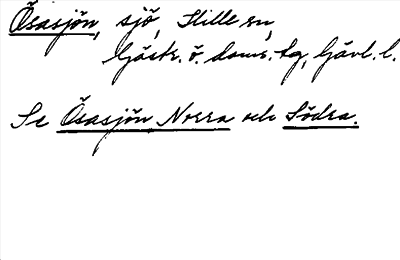 Ösasjön, sjö, Hille sn,
Gästr. ö. doms. tg, Gävl. l.
Se Ösasjön Norra och Södra.